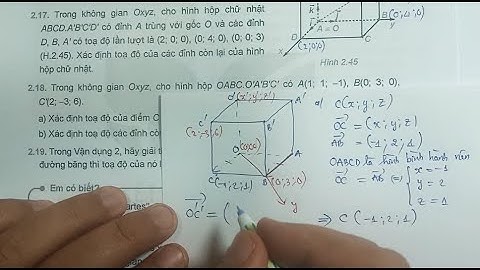 2.17. Trong không gian Oxyz, cho hình hộp chữ nhật
ABCD.A'B'C'D' có đỉnh A trùng với gốc O và các đỉnh
D, B, A' có toạ độ lần lượt là (2; 0; 0), (0; 4; 0), (0; 0; 3)
(H.2.45). Xác định toạ độ của các đỉnh còn lại của hình
hộp chữ nhật.
A = O
B(0;4;0)
D
(2;0;0)
x
Hình 2.45
2.18. Trong không gian Oxyz, cho hình hộp OABC.O'A'B'C' có A(1; 1; –1), B(0; 3; 0),
C'(2; –3; 6).
a) Xác định toạ độ của điểm C
b) Xác định toạ độ các đỉnh còn
2.19. Trong Vận dụng 2, hãy giải t
đường băng thì toạ độ của nó l
Em có biết?
O'(x';y';z')
A'
C'
(2;-3;6)
B'
O(0;0;0)
A
C(-1;2;1)
B(0;3;0)
y
a) C(x;y;z)
OC = (x;y;z)
AB = (-1;2;1)
OABC là hình bình hành nên
OC = AB ⇔ { x = -1
y = 2
z = 1
⇒ C(-1;2;1)
OC' = (